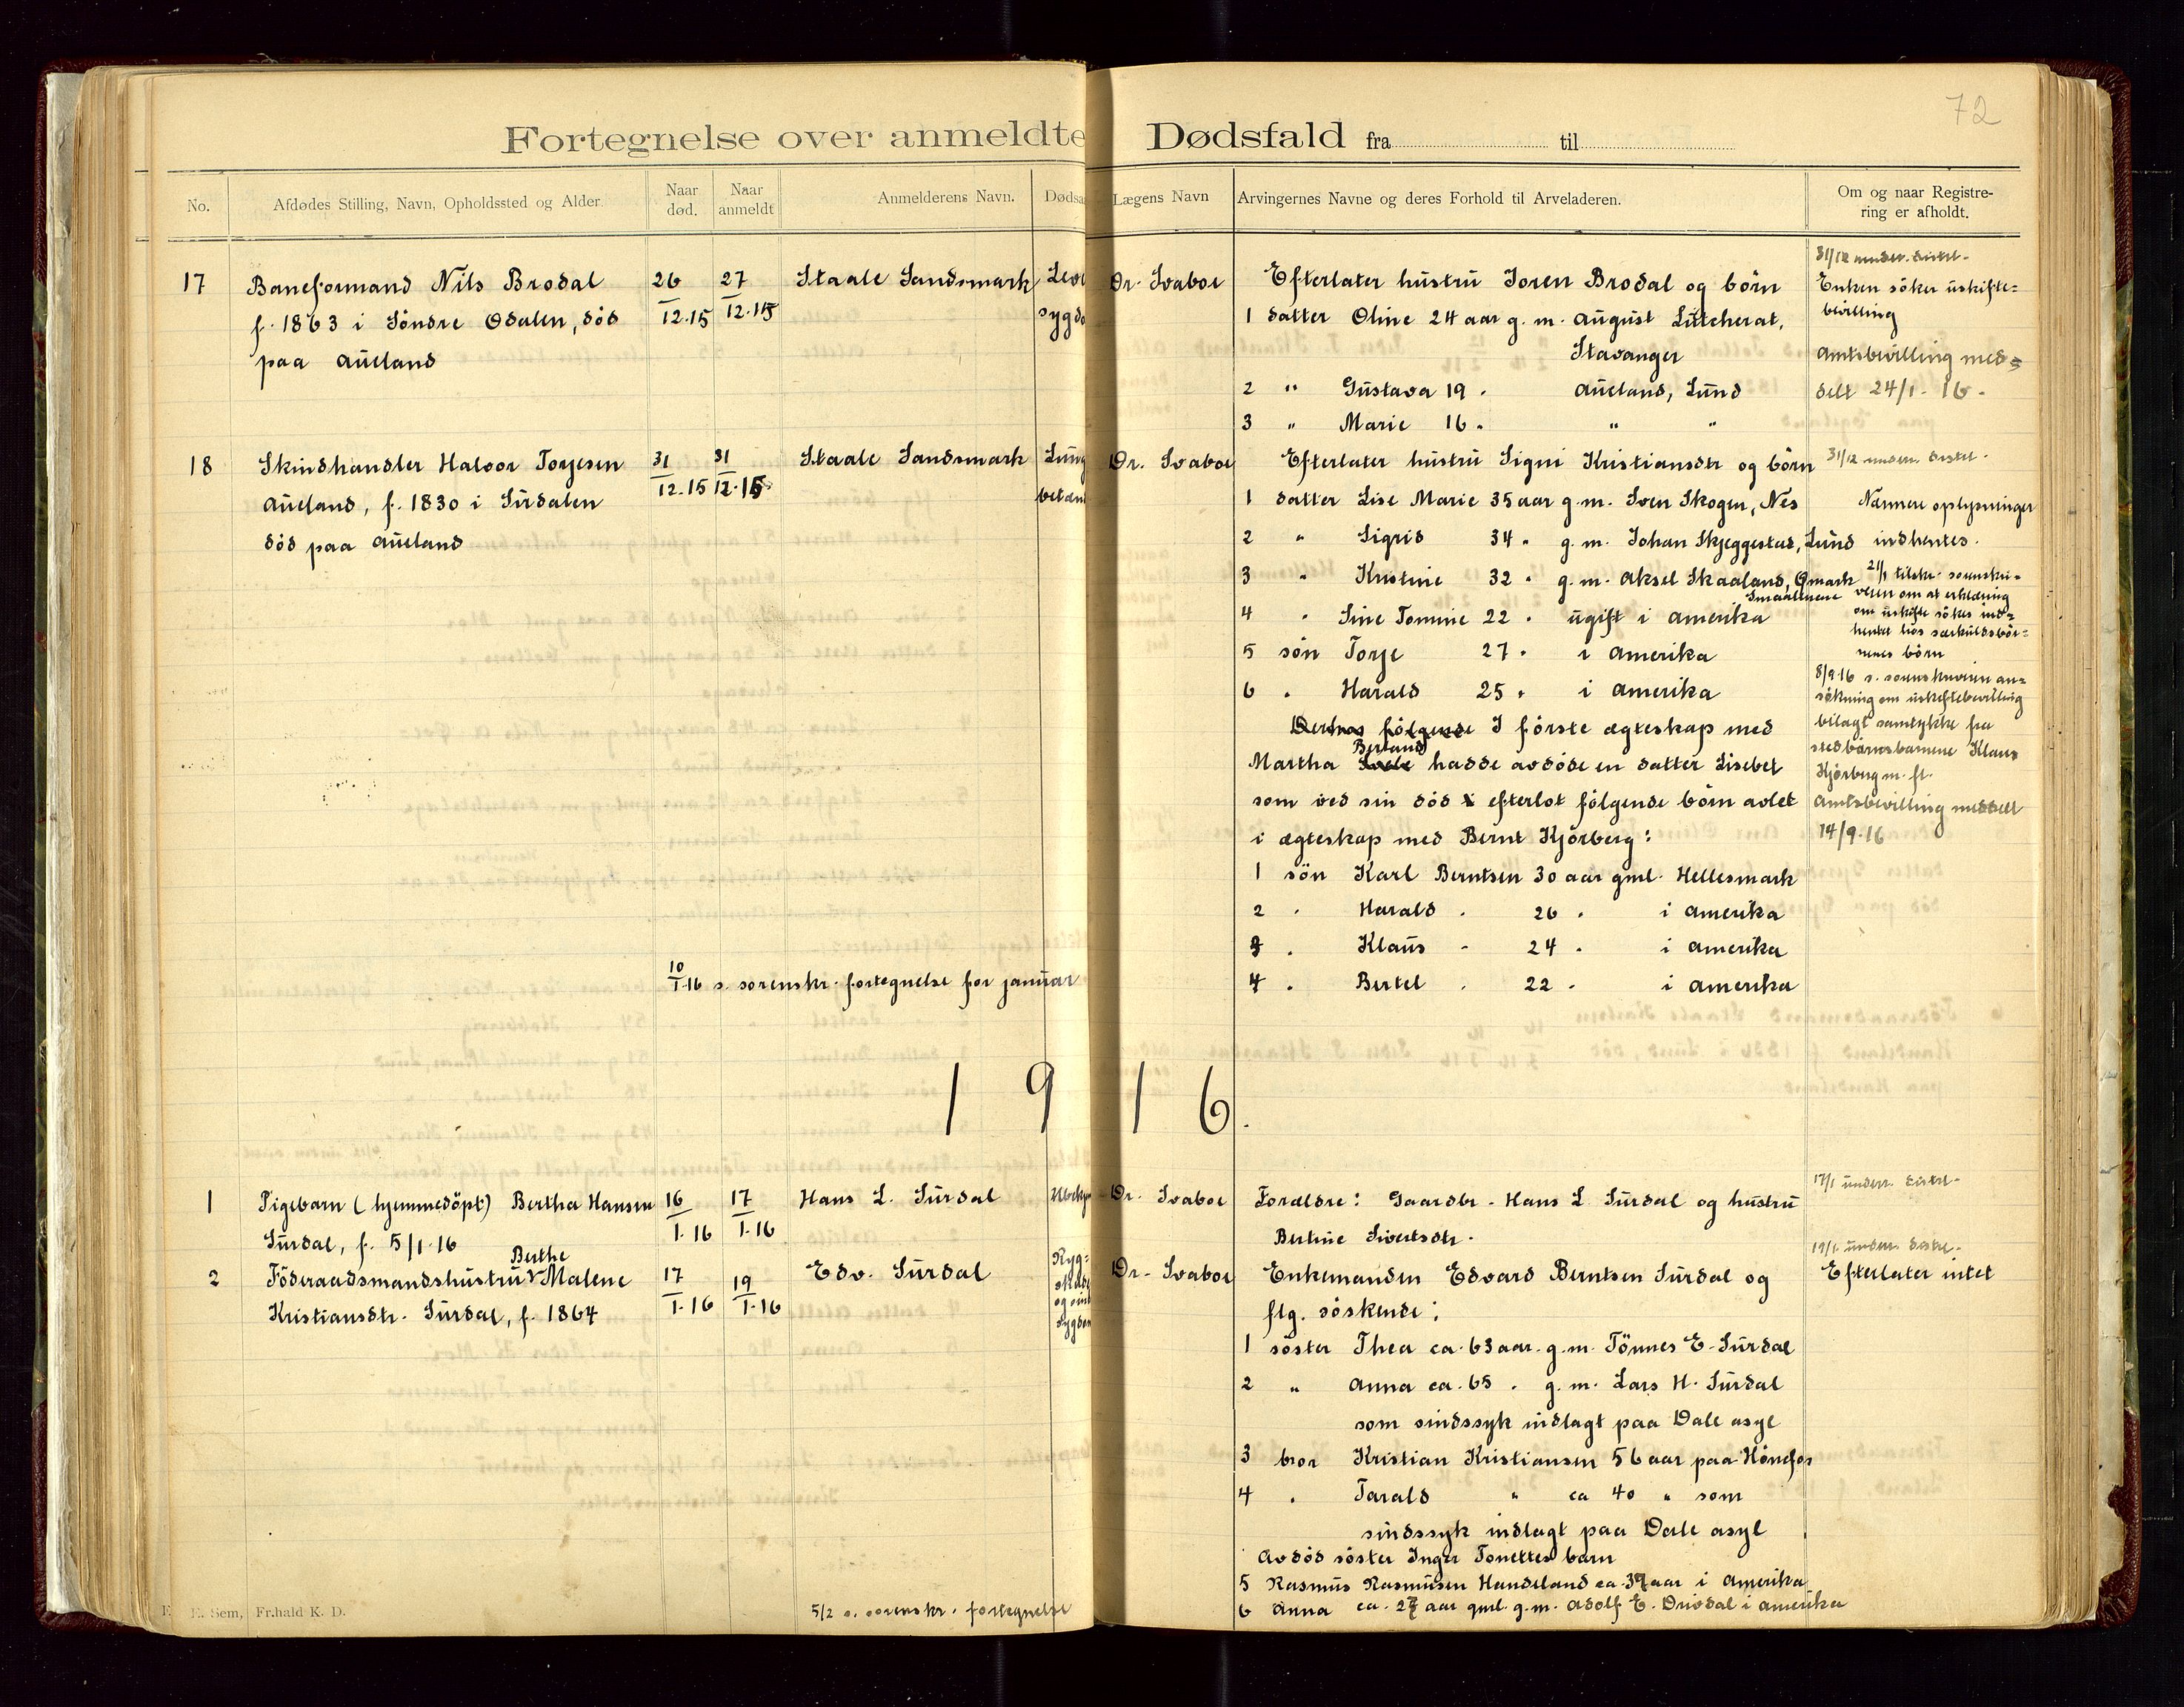 72
Fortegnelse over anmeldte Dødsfald fra til
No. Afdødes Stilling, Navn, Opholdssted og Alder. Naar død. Naar anmeldt Anmelderens Navn. Lægens Navn Arvingernes Navne og deres Forhold til Arveladeren. Om og naar Registrering er afholdt.
17 Baneformand Nils Brodal
f. 1863 i Söndre Odalen, död
paa Aueland
26/12.15 27/12.15 Staale Sandsmark
sygdo
Dr. Svaboe
Efterlater hustru Joren Brodal og börn
1 datter Oline 24 aar g. m. August Lutcherat,
Stavanger
2 " Gustava 19 . Aueland, Lund
3 " Marie 16 . " "
31/12 underr. distrl.
Enken söker uskifte=
bevilling
Amtsbevilling med=
delt 24/1. 16.
18 Skindhandler Halvor Torjesen
Aueland, f. 1830 i Sirdalen
död paa Aueland
31/12.15 31/12.15 Staale Sandsmark
Lung
betæn
Dr. Svaboe
Efterlater hustru Signi Kristiansdtr og börn
1 datter Lise Marie 35 aar g. m. Sven Skogen, Nes
2 " Sigrid 34 " g. m. Johan Skjeggestad, Lund
3 " Kristine 32 " g. m. Aksel Skaaland, Ömark
Smaalenene
4 " Sine Tomine 22 . ugift i Amerika
5 sön Torje 27 . i Amerika
6 . Harald 25 . i Amerika
Desuden fölgende I förste ægteskap med
Berland
Martha hadde avdöde en datter Lisebet
som ved sin död efterlot fölgende börn avlet
i ægteskap med Bernt Kjörberg:
1 sön Karl Berntsen 30 aar gml. Hellesmark
2 . Harald . 26 . i Amerika
3 . Klaus . 24 . i Amerika
4 . Bertel . 22 . i Amerika
31/12 underr. distrl.
Nærmere oplysninger
indhentes.
21/1 tilskr. sorenskri=
veren om at erklæring
om uskifte sökes ind=
hentet hos særkuldsbör=
nenes börn
8/9.16 s. sorenskriveren an=
sökning om uskiftebevilling
bilagt samtykke fra
stedbarnsbarnene Klaus
Kjörberg m. fl.
Amtsbevilling meddelt
14/9.16
10/1.16 s. sorenskr. fortegnelse for januar
1916.
1 Pigebarn (hjemmedöpt) Bertha Hansen
Surdal, f. 5/1.16
16/1.16 17/1.16 Hans L. Surdal
Ubekj
Dr. Svaboe
Forældre: Gaardbr. Hans L. Surdal og hustru
Bertine Sivertsdtr.
17/1 underr. distrl.
2 Föderaadsmandshustru Berthe Malene
Kristiansdtr. Surdal, f. 1864
17/1.16 19/1.16 Edv. Surdal
Ryg=
skade
og sind
sygdom
Dr. Svaboe
Enkemanden Edvard Berntsen Surdal og
flg. söskende:
1 söster Thea ca. 63 aar. g. m. Tönnes E. Surdal
2 " Anna ca. 65 . g. m. Lars H. Surdal
som sindssyk indlagt paa Dale asyl
3 bror Kristian Kristiansen 56 aar paa Hönefos
4 . Tarald " ca 40 " som
sindssyk indlagt paa Dale asyl
Avdöd söster Inger Tonettes barn
5 Rasmus Rasmusen Handeland ca. 39 aar i Amerika
6 Anna ca. 27 aar gml. g. m. Adolf E. Drivdal i Amerika
19/1. underr. distrl.
Efterlater intet
5/2 s. sorenskr. fortegnelse
E. Sem, Fr.hald K. D.